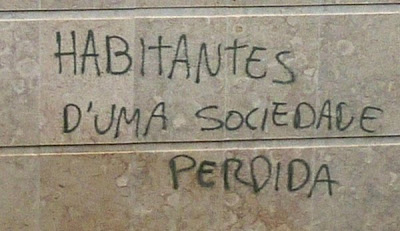 HABITANTES
D'UMA SOCIEDADE
PERDIDA